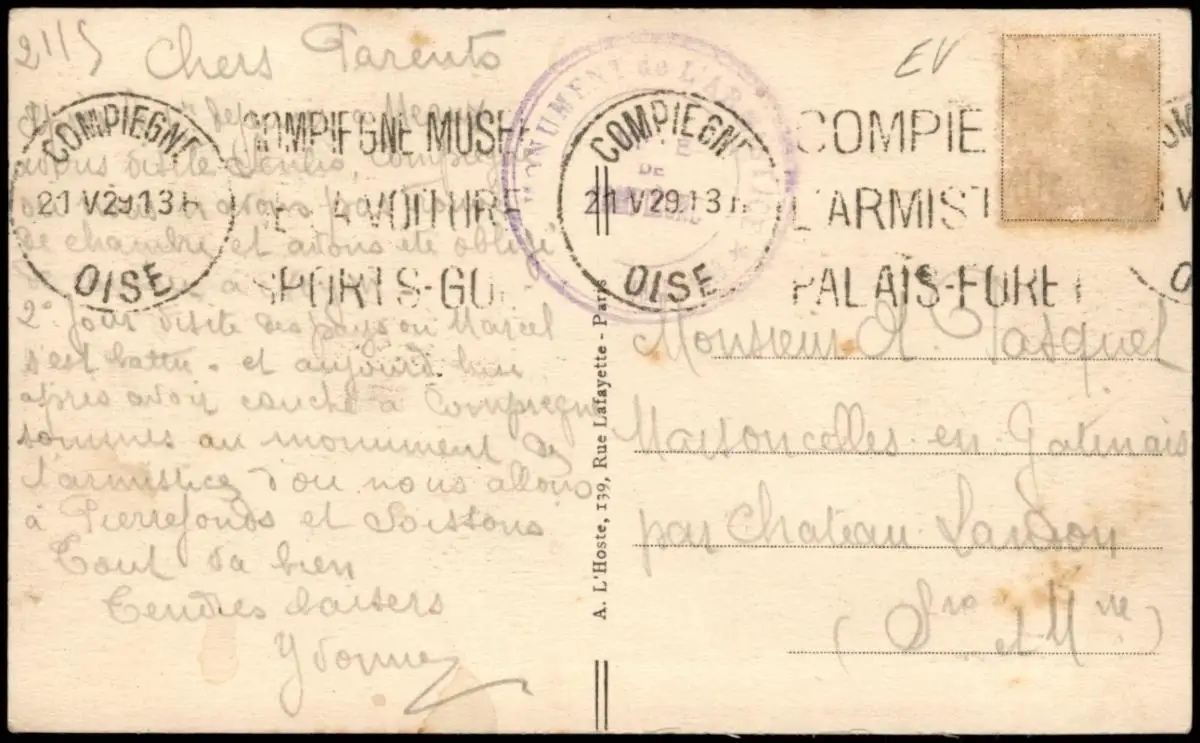 2115 Chers Parents
avons visité Senlis, Compiègne
de chambre et avons été obligé
2e jour visite des pays ou Marcel
s'est battu. et aujourd'hui
après avoir couché à Compiègne
sommes au monument de
l'armistice d'ou nous allons
à Pierrefonds et Soissons
Tout va bien
Tendres baisers
Yvonne
COMPIEGNE
21 V 29.13 H
OISE
COMPIEGNE MUSEE
DE LA VOITURE
SPORTS-GO
MONUMENT de L'ARMISTICE
DE
COMPIEGNE
21 V 29.13 H
OISE
COMPIE
L'ARMIST
PALAIS-FORET
EV
A. L'Hoste, 139, Rue Lafayette - Paris
Monsieur A. Pasquet
Maisoncelles en Gatinais
par Chateau Landon
(Sne et Mne)